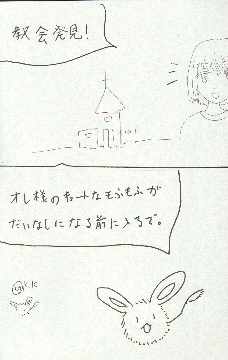 教会発見!
オレ様のキュートなもふもふが
だいなしになる前に入るで。